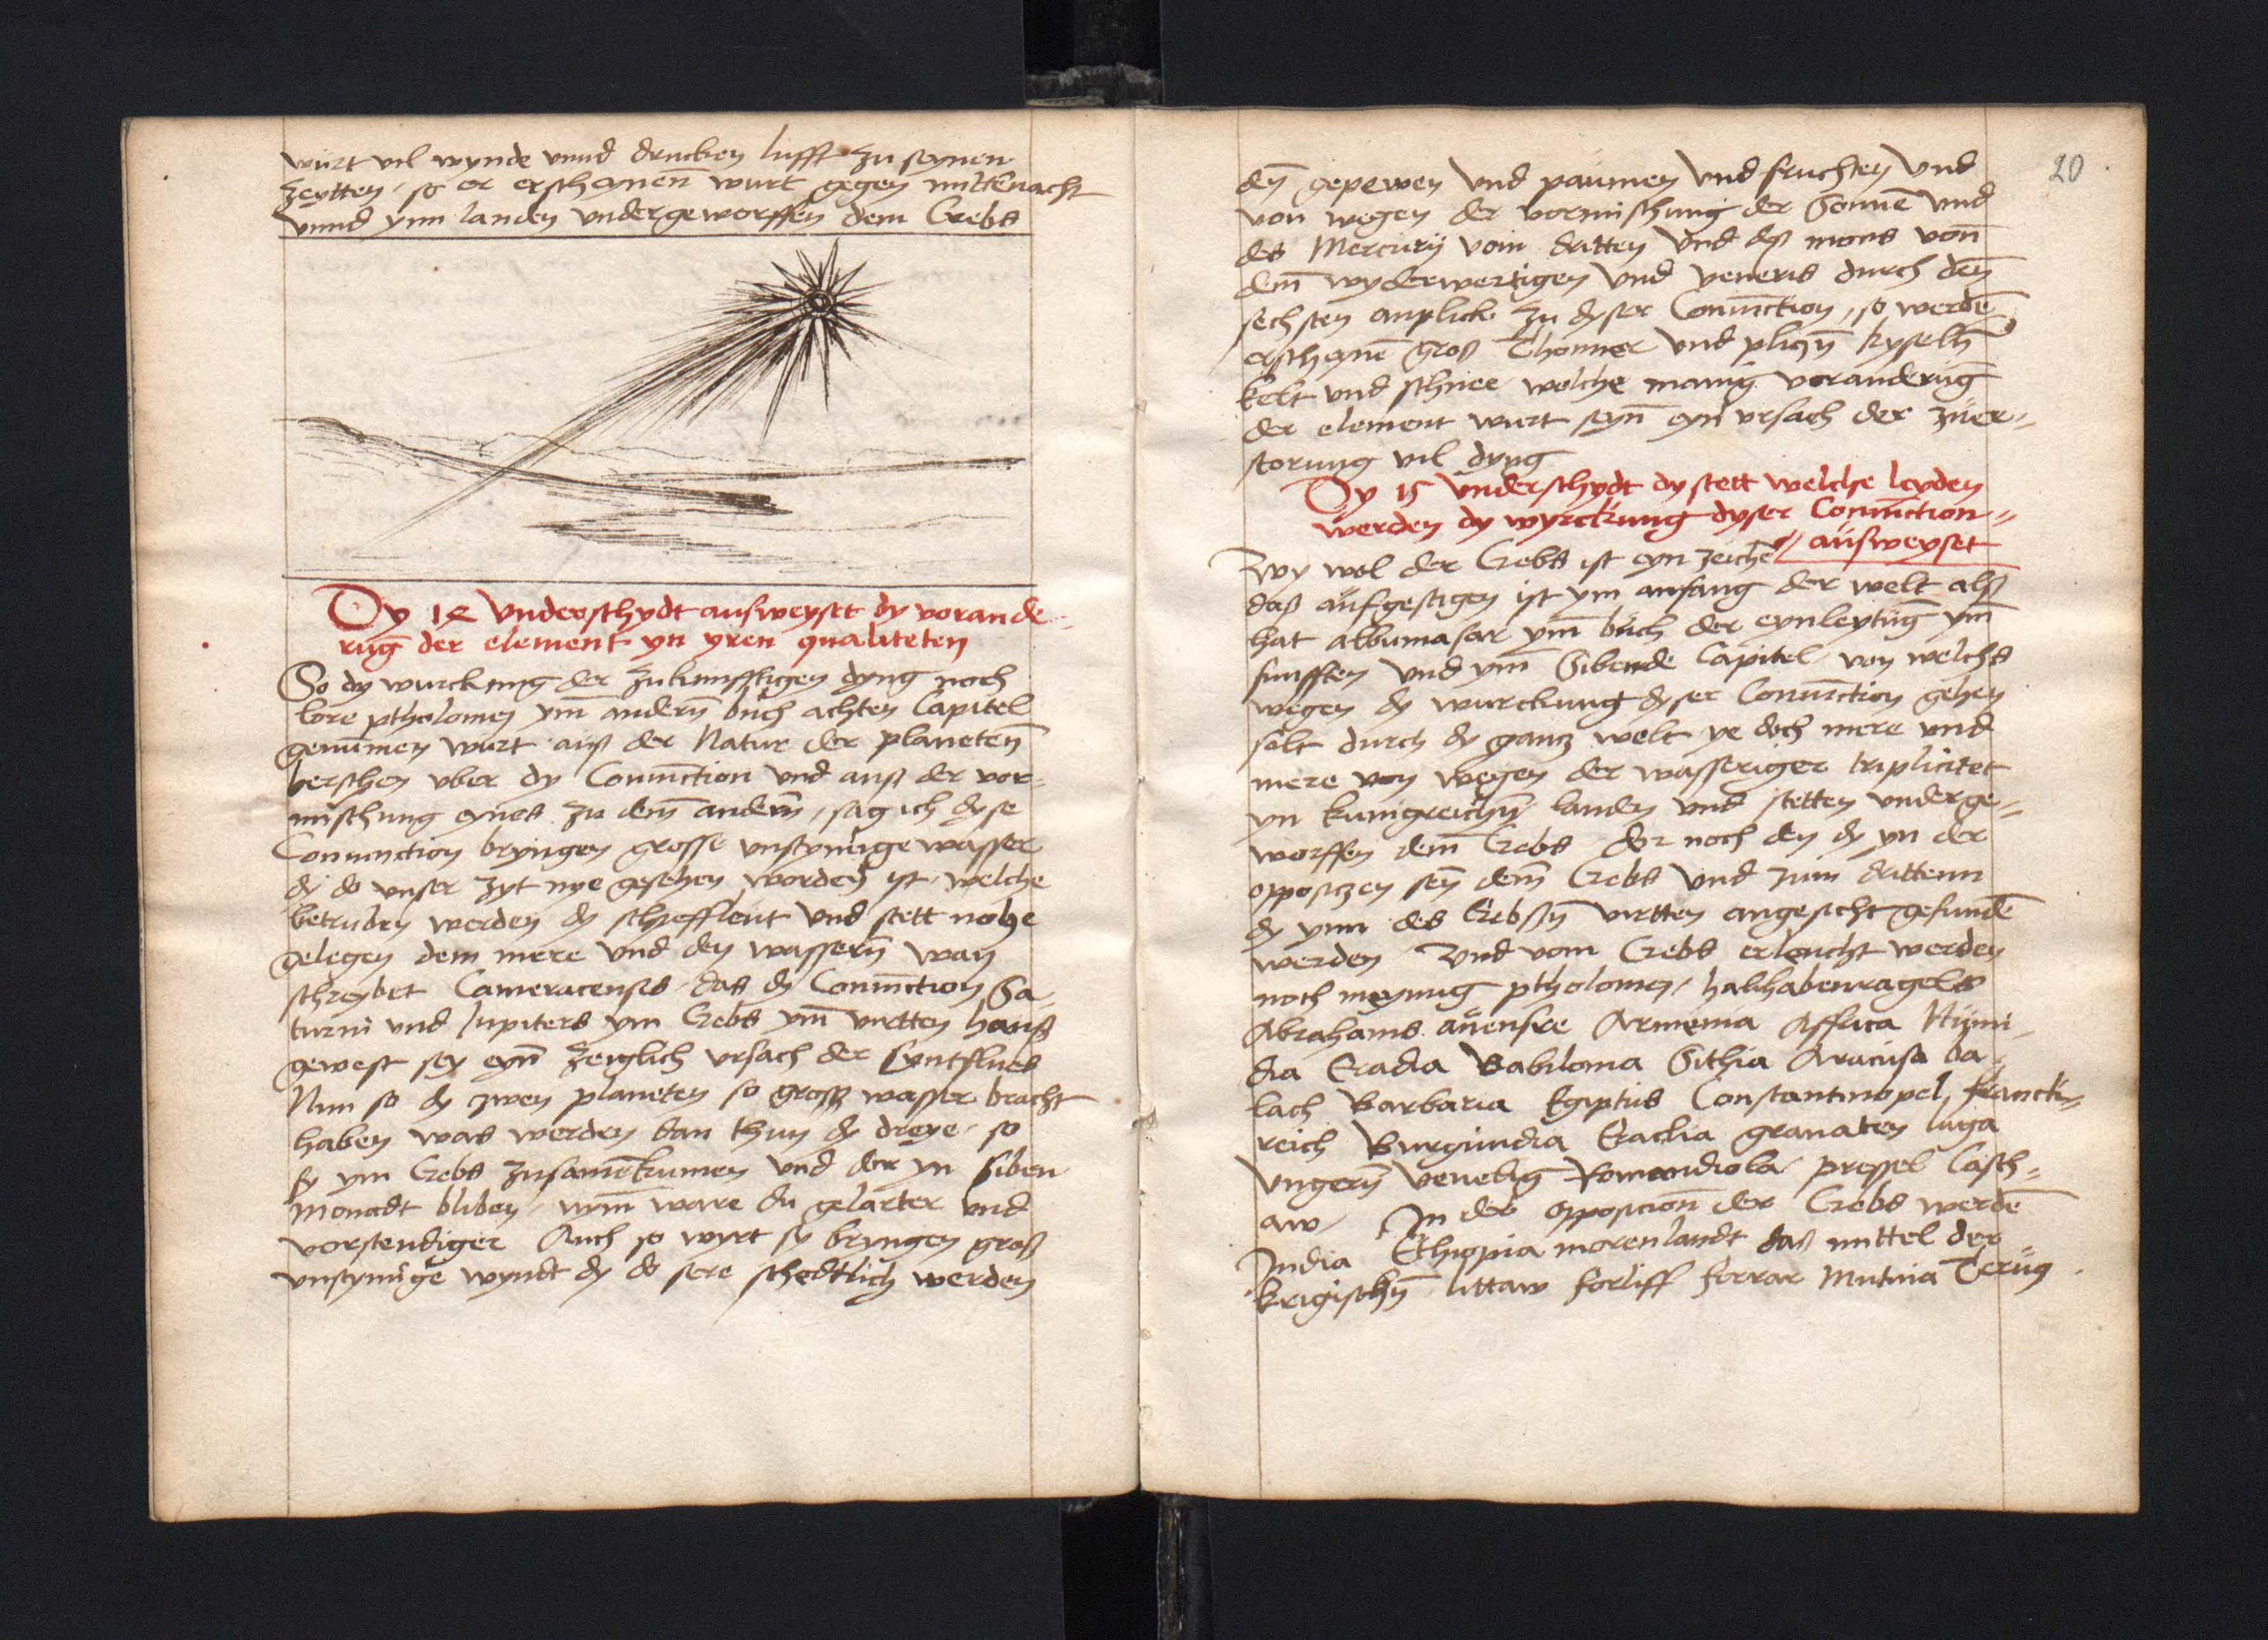 würt vil wynde vnnd drucken lufft zu seynen
zeytten / so er erscheynen̄ wurt gegen mittenacht
vnnd ynn landen vndergeworffen dem Crebs
Dy 14 vnderschydt ausweyset dy vorande-
rūg der element yn yren qualiteten
So dy wurckung der zukunfftigen dyng noch
lore ptholomey ym̄ andern̄ buch achten Capitel
genūmen wurt auß der Natur der planeten̄
herschen vber dy Coniūction vnd auß der vor-
mischung eynes zu dem̄ andern̄ / sag ich dyse
Coniunction bryngen grosse vnstymige wasser
dy do vnser zyt nye gesehen worden ist / welche
betruben werden dy schieffleut vnd stett nohe
gelegen dem mere vnd den wassern̄ wan
schreybet Cameracensis das dy Coniūction Sa-
turni vnd Jupiters ym Crebs ym̄ virtten hauß
gewest sey eyn̄ zeuglich vrsach der Syntflus
Nun so dy zwen planeten so groß wasser bracht
haben was werden dan thun dy dreye / so
sy ym Crebs zusamēkumen vnd dor yn siben
monadt bliben / wym̄ ware du gelarter vnd
vorstendiger Auch so wyrt sy bryngen groß
vnstymige wyndt dy do sere schedtlich werden
20
den̄ gepewen vnd paümen vnd fruchten vnd
von wegen der vormischung der Sonnē vnd
des Mercurij vom dritten vnd deß mons von̄
dem̄ wyderwertigen vnd veneris durch den̄
sechsten anplick zu dyser Coniūction / so werdē
erscheynē groß Thonner vnd plicȳ kyselh̄
kelt vnd schnee welche manig voranderūg
der element wurt seyn̄ eyn vrsach der züer-
storung vil dyng
Dy 15 vnderschydt dy stett welche leyden
werden dy wyrckung dyser Coniūction-
ausweyset
Wy wol der Crebs ist eyn zeichē
daß aüfgestigen ist ym anfang der welt alß
hat albumasar ym̄ büch der eynleytūg ym̄
funfften vnd ym̄ Sibende Capitel / von welchs
wegen dy wurckung dyser Coniūction gehen
solt durch dy gancz welt ye doch mere vnd
mere von wegen der wasseriger triplicitet
yn kunigreichȳ landen vnd stetten vnderge-
worffen dem̄ Crebs dor noch den dy yn der
opposiczen sen̄ dem̄ Crebs vnd zum drittenn
dy ynn des Crebßȳ virtten angesicht gefundē
werden vnd vom Crebs erleucht werden
noch meynung ptholomey / halihabenragels
Abrahams aüensre Armenia Affrica Nümi-
dia Babilonia Sithia
lach Barbaria Egiptüs Constantinopel franck-
reich Burgundia granaten luga
vngern̄ Venedig Romandiola pressel Casch-
aw / In der opposicion̄ der Crebs werdē
India Ethiopia morenlandt daß mittel der
krigischȳ littaw forliff ferrar Mutina